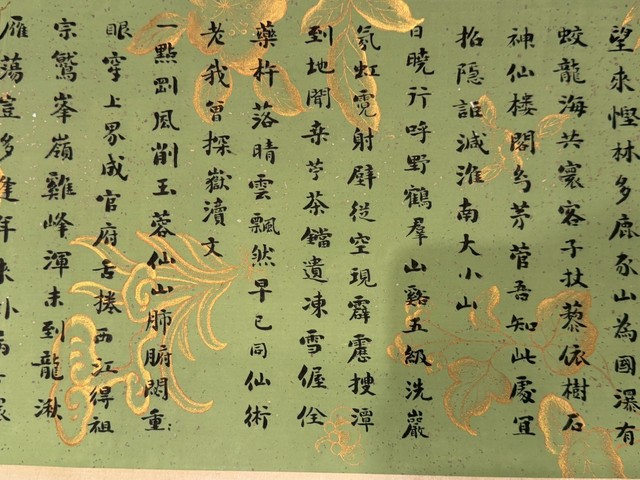 望來慳林多鹿豕山為國瀑有
蛟龍海共寰客子扶藜依樹石
神仙樓閣兮茅菅吾知此處宜
招隱詎減淮南大小山
日曉行呼野鶴羣山谿五級洗巖
氛虹霓射壁從空現霹靂搜潭
到地聞桒苧茶鐺遺凍雪偓佺
藥杵落晴雲飄然早已同仙術
老我曾探嶽瀆文
一點剛風削玉蓉仙山肺腑悶重:
眼穿上界成官府舌捲西江得祖
宗鷲峯嶺雞峰渾未到龍湫
雁蕩豈多逢年來卧病